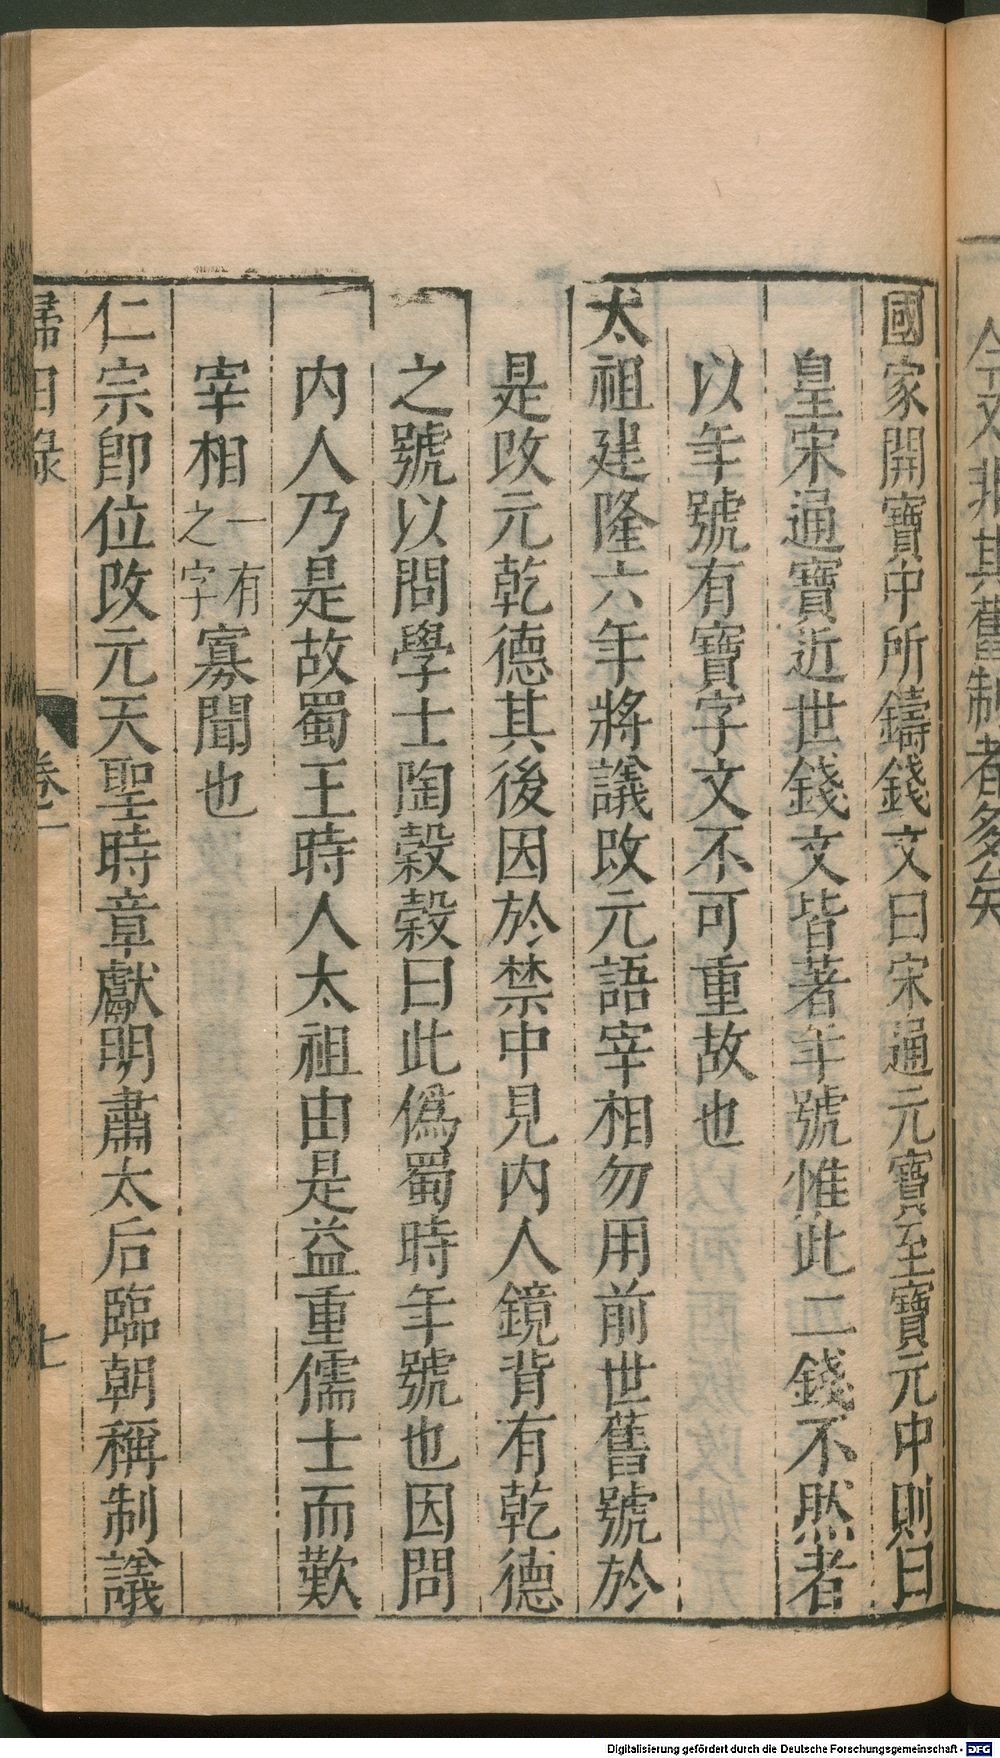 今文非其舊制者多矣
國家開寶中所鑄錢文曰宋通元寶至寶元中則曰
皇宋通寶近世錢文皆著年號惟此二錢不然者
以年號有寶字文不可重故也
太祖建隆六年將議改元語宰相勿用前世舊號於
是改元乾德其後因於禁中見內人鏡背有乾德
之號以問學士陶穀穀曰此偽蜀時年號也因問
內人乃是故蜀王時人太祖由是益重儒士而歎
宰相一有之字寡聞也
仁宗卽位改元天聖時章獻明肅太后臨朝稱制議
歸田錄 卷一 七
Digitalisierung gefördert durch die Deutsche Forschungsgemeinschaft - DFG